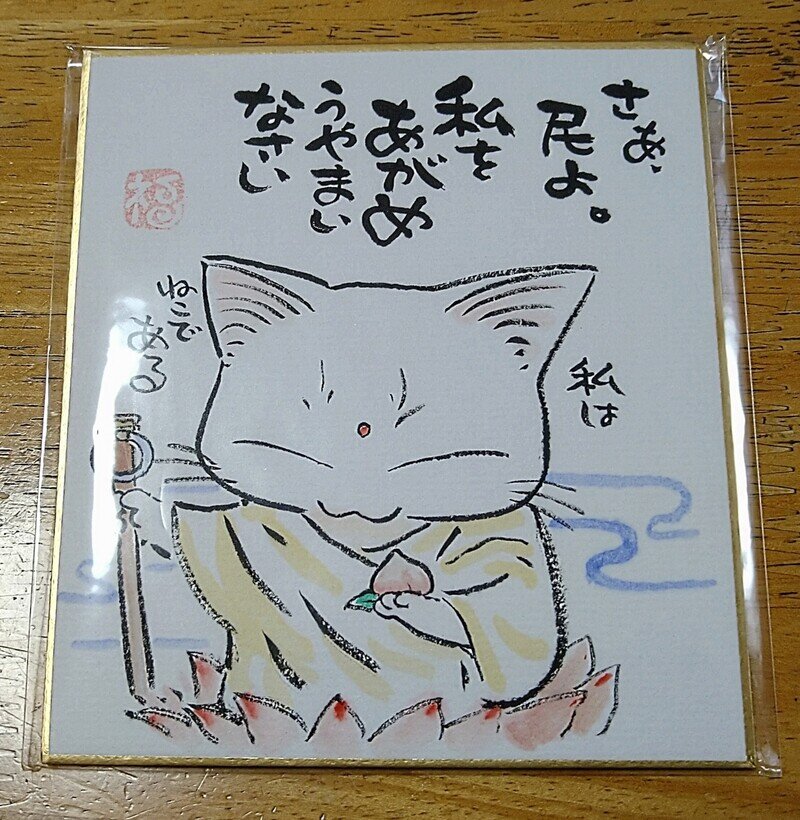 さあ、
民よ。
私を
あがめ
うやまい
なさい
私は
ねこで
ある
福